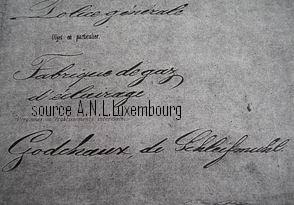 Police générale
Objet en particulier.
Fabrique de gaz
d'éclairage
source A.N.L.Luxembourg
Godchaux, de Schleifmühl